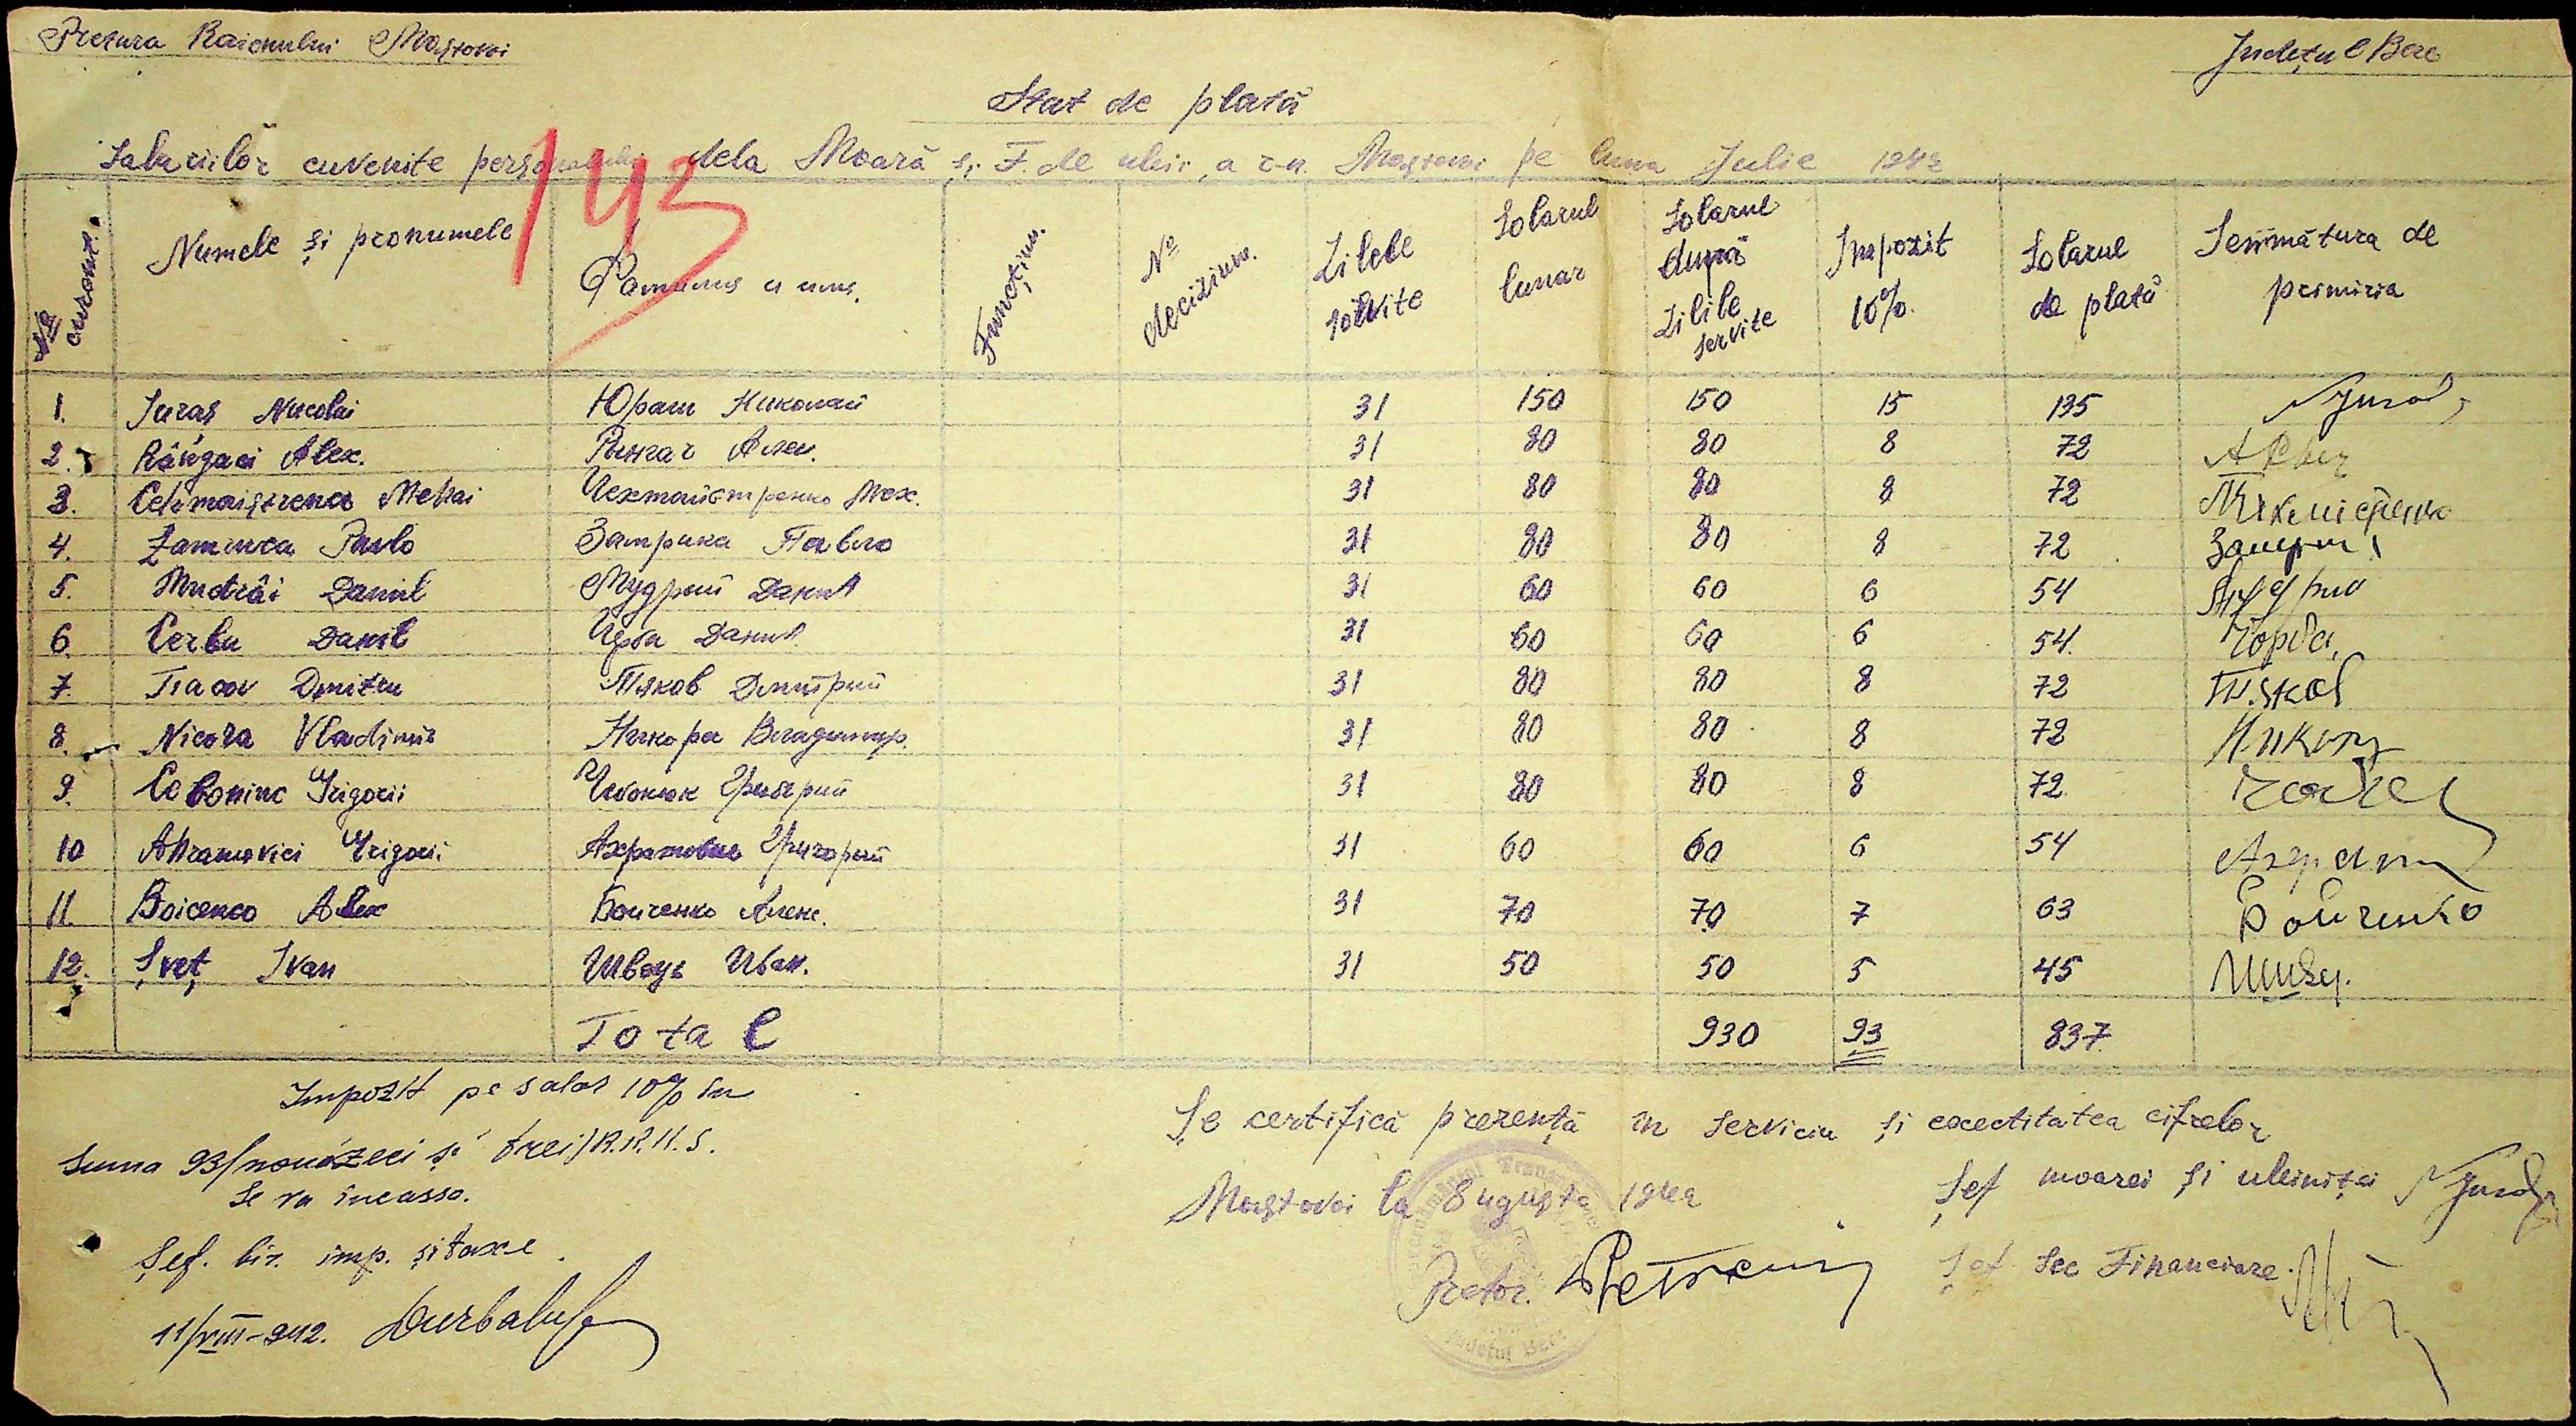 Pretura Raionului Mostovoi
Județul Bere
Stat de plată
Salariilor cuvenite personalului dela Moară și F. de ulei, a r-n. Mostovoi pe luna Julie 1942
143
№ curent. Numele și pronumele Funcțiun. № deciziun. Zilele solvite Solarul lunar Solarul după zilile servite Impozit 10%. Solarul de plată Semmătura de primiria
1. Juraș Nicolai Юраш Николай 31 150 150 15 135
2. Rângaci Alex. Рингач Алек. 31 80 80 8 72
3. Cehmaistrenco Mehai Чехмайстренко Мех. 31 80 80 8 72
4. Zamrica Pavlo Замрика Павло 31 80 80 8 72
5. Mudrâi Danil Мудрый Данил 31 60 60 6 54
6. Cerba Danil Черба Данил 31 60 60 6 54. Чорба,
7. Tiacov Dmitru Тяков Дмитрий 31 80 80 8 72
8. Nicora Vladimir Никора Владимир. 31 80 80 8 72
9. Cobaniuc Grigorii Чебонюк Григорий 31 80 80 8 72
10 Ahramovici Grigorii Ахрамович Григорий 31 60 60 6 54
11. Boicenco Alex Бойченко Алекс. 31 70 70 7 63 Бойченко
12. Șveț Ivan Швець Иван. 31 50 50 5 45
Total 930 93 837
Impozit pe salar 10% în
suma 93/nouăzeci și trei) R.K.K.S.
Se va încassa.
Șef. bir. imp. și taxe
11/VIII-942.
Se certifică prezență în serviciu și exectitatea cifrelor
Mostovoi la 8 ugusta 1942
Șef moarei și uleiniței
Pretor.
Șef Sec Financiare.
Județul Bere